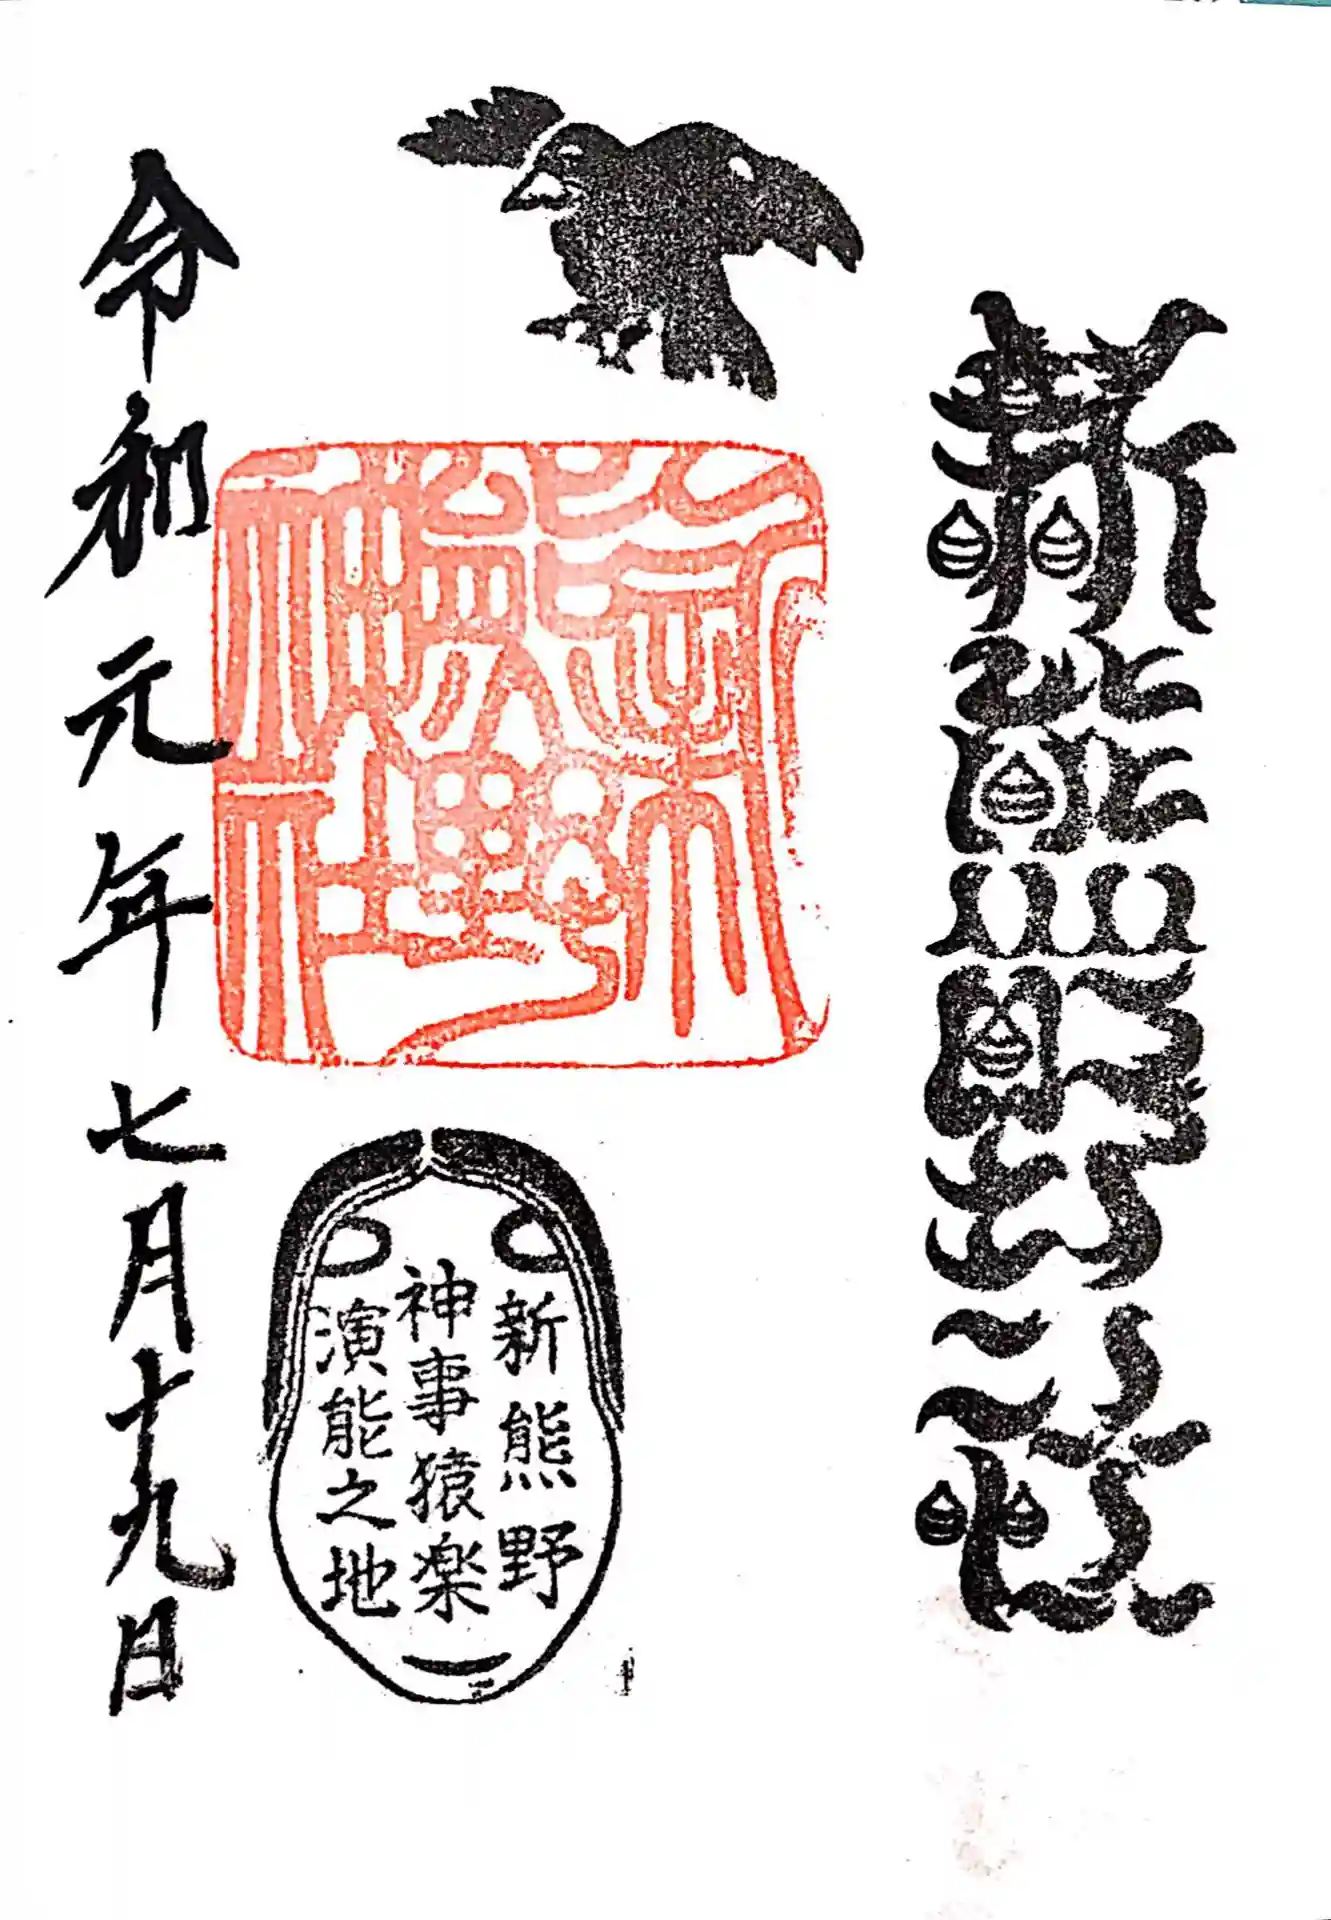 新熊野社
新熊野神社
新熊野
神事猿楽
演能之地
令和元年七月十九日